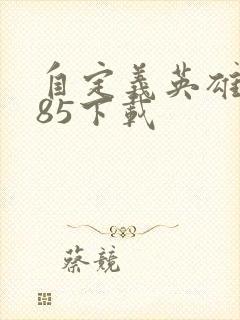 自定義英雄
85下載
蔡競